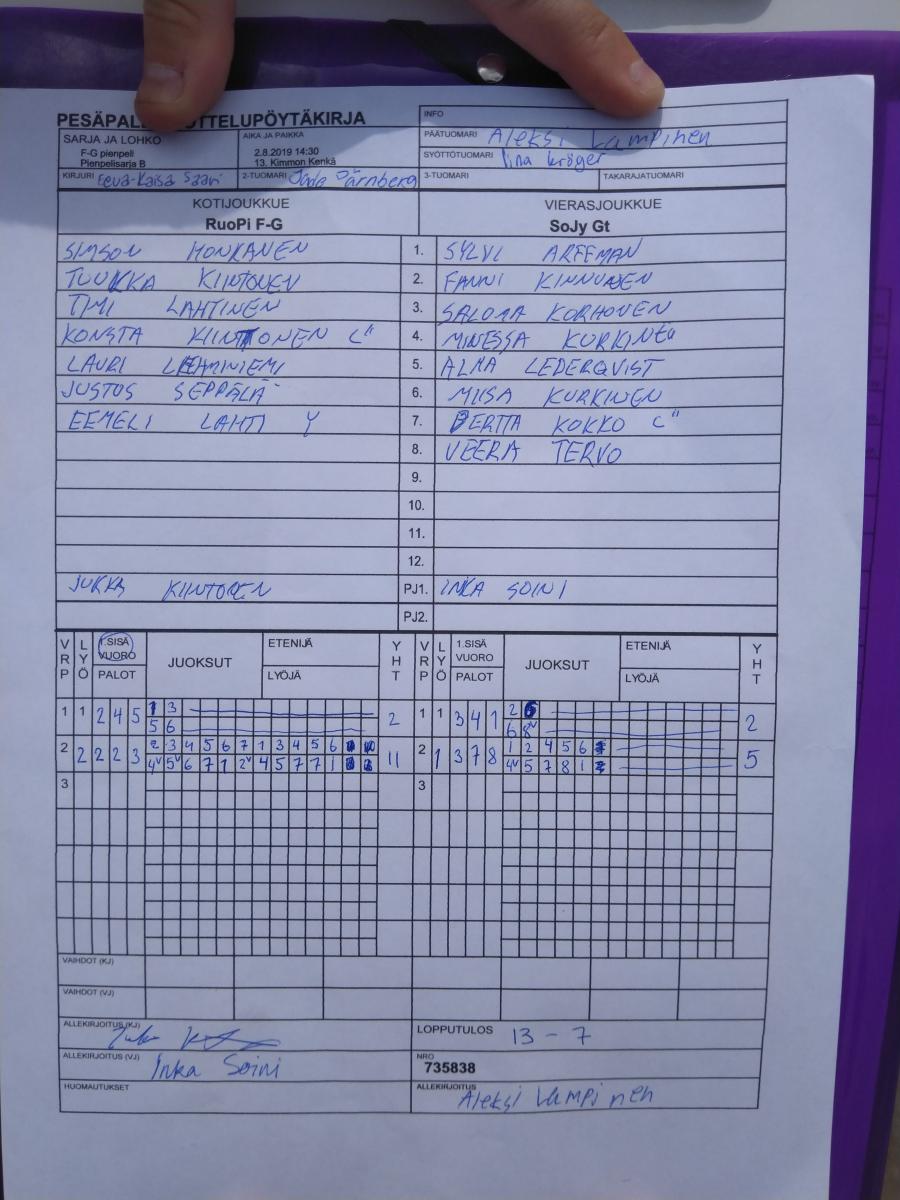 PESÄPAL OTTELUPÖYTÄKIRJA
SARJA JA LOHKO
F-G pienpeli
Pienpelisarja B
AIKA JA PAIKKA
2.8.2019 14:30
13. Kimmon Kenkä
INFO
PÄÄTUOMARI Aleksi Lampinen
SYÖTTÖTUOMARI Iina Kröger
KIRJURI Eeva-Kaisa Saari
2-TUOMARI Pärnberg
3-TUOMARI
TAKARAJATUOMARI
KOTIJOUKKUE
RuoPi F-G
VIERASJOUKKUE
SoJy Gt
SIMSON HONKANEN 1. SYLVI ARFFMAN
TUUKKA KIINTONEN 2. FANNI KINNUNEN
TIMI LAHTINEN 3. SALOMA KORHONEN
KONSTA KIINTONEN C" 4. MINESSA KURKINEN
LAURI LEHMINIEMI 5. ALMA LEDERQVIST
JUSTUS SEPPÄLÄ 6. MIISA KURKINEN
EEMELI LAHTI Y 7. BERTTA KOKKO C"
8. VEERA TERVO
9.
10.
11.
12.
JUKKA KIINTONEN PJ1. INKA SOINI
PJ2.
VRP LYÖ 1.SISÄ VUORO PALOT JUOKSUT ETENIJÄ LYÖJÄ YHT VRP LYÖ 1.SISÄ VUORO PALOT JUOKSUT ETENIJÄ LYÖJÄ YHT
1 1 2 4 5 1 3 2 1 1 3 4 1 2 6 2
5 6 6 8v
2 2 2 2 3 2 3 4 5 6 7 1 3 4 5 6 11 2 1 3 7 8 1 2 4 5 6 5
4v 5v 6 7 1 2v 4 5 7 7 1 4v 5 7 8 1
3 3
VAIHDOT (KJ)
VAIHDOT (VJ)
ALLEKIRJOITUS (KJ)
LOPPUTULOS 13 - 7
ALLEKIRJOITUS (VJ) Inka Soini
NRO
735838
HUOMAUTUKSET
ALLEKIRJOITUS Aleksi Lampinen